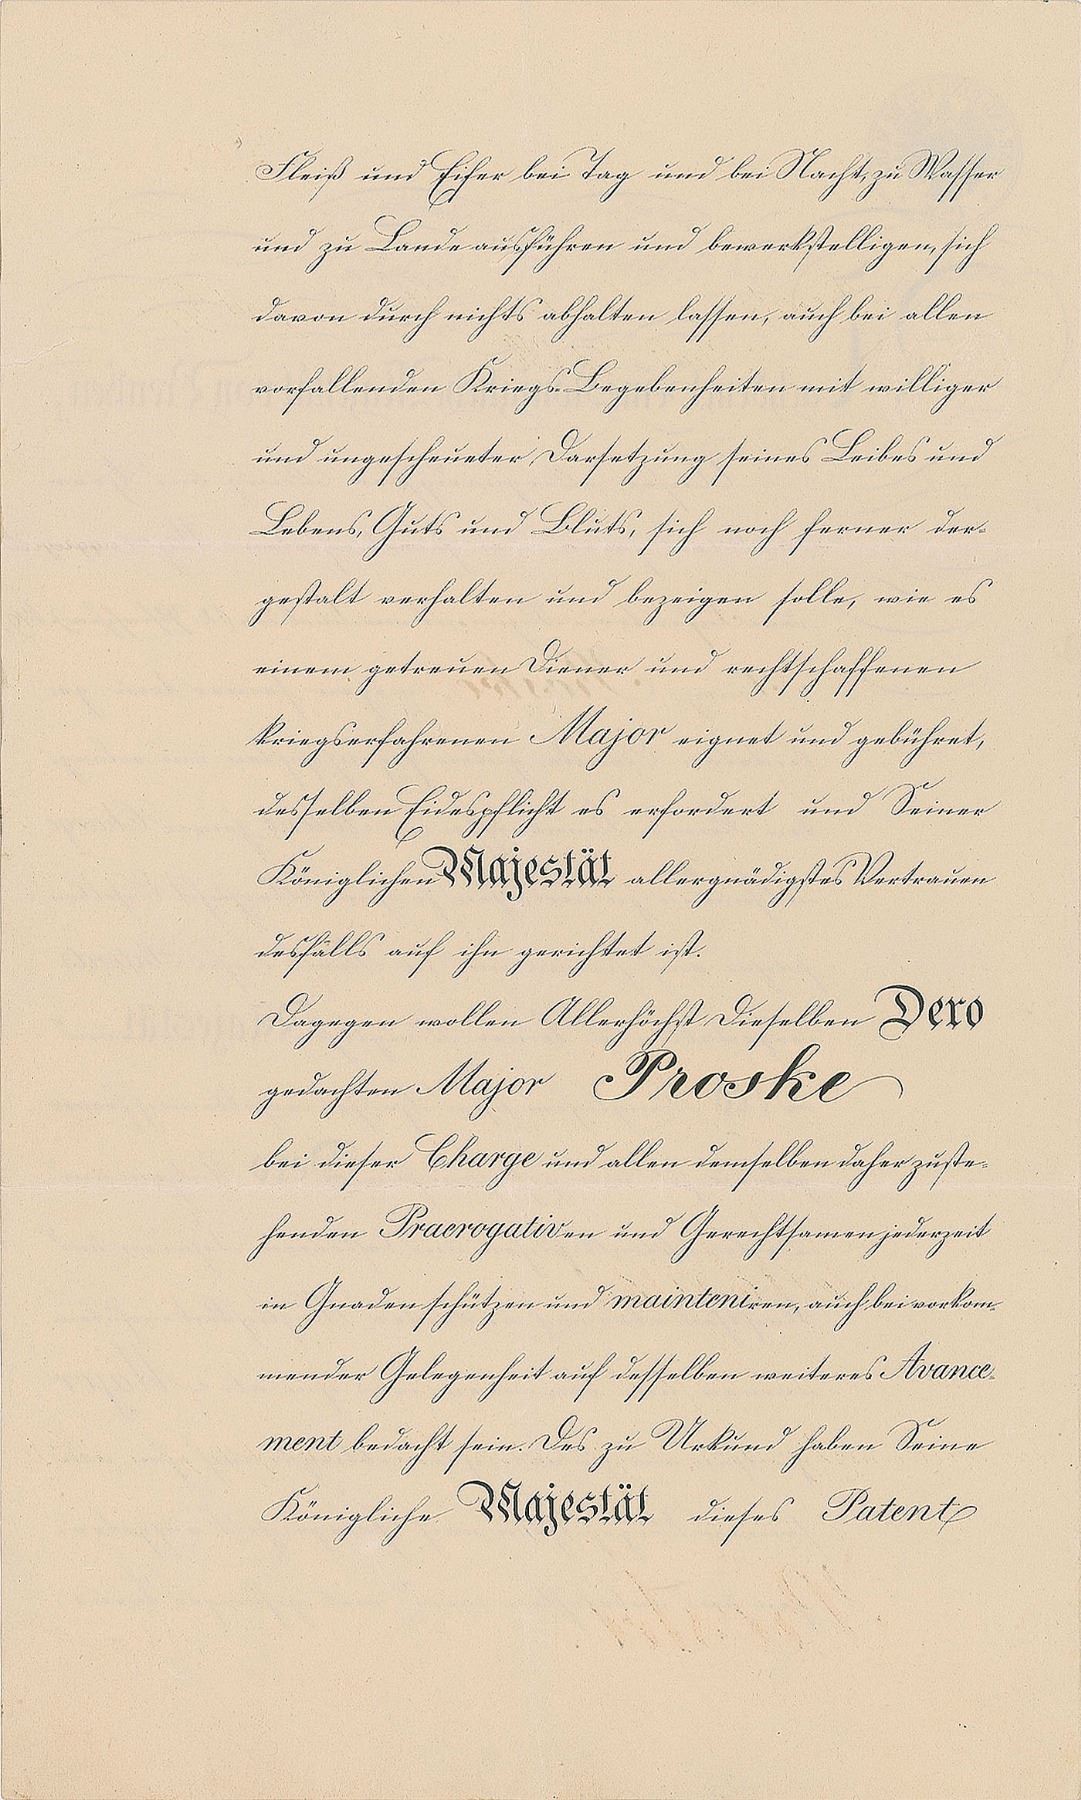 Fleiß und Eifer bei Tag und bei Nacht, zu Wasser
und zu Lande ausführen und bewerkstelligen, sich
davon durch nichts abhalten lassen, auch bei allen
vorfallenden Kriegs-Begebenheiten mit williger
und ungescheueter Darsetzung seines Leibes und
Lebens, Guts und Bluts, sich noch ferner der-
gestalt verhalten und bezeigen solle, wie es
einem getreuen Diener und rechtschaffenen
kriegserfahrenen Major eignet und gebühret,
desselben Eidespflicht es erfordert und Seiner
Königlichen Majestät allergnädigstes Vertrauen
desfalls auf ihn gerichtet ist.
Dagegen wollen Allerhöchst Dieselben Dero
gedachten Major Proske
bei dieser Charge und allen demselben daher zuste-
henden Praerogativen und Gerechtsamen jederzeit
in Gnaden schützen und mainteniren, auch bei vorkom-
mender Gelegenheit auf desselben weiteres Avance-
ment bedacht sein. Des zu Urkund haben Seine
Königliche Majestät dieses Patent